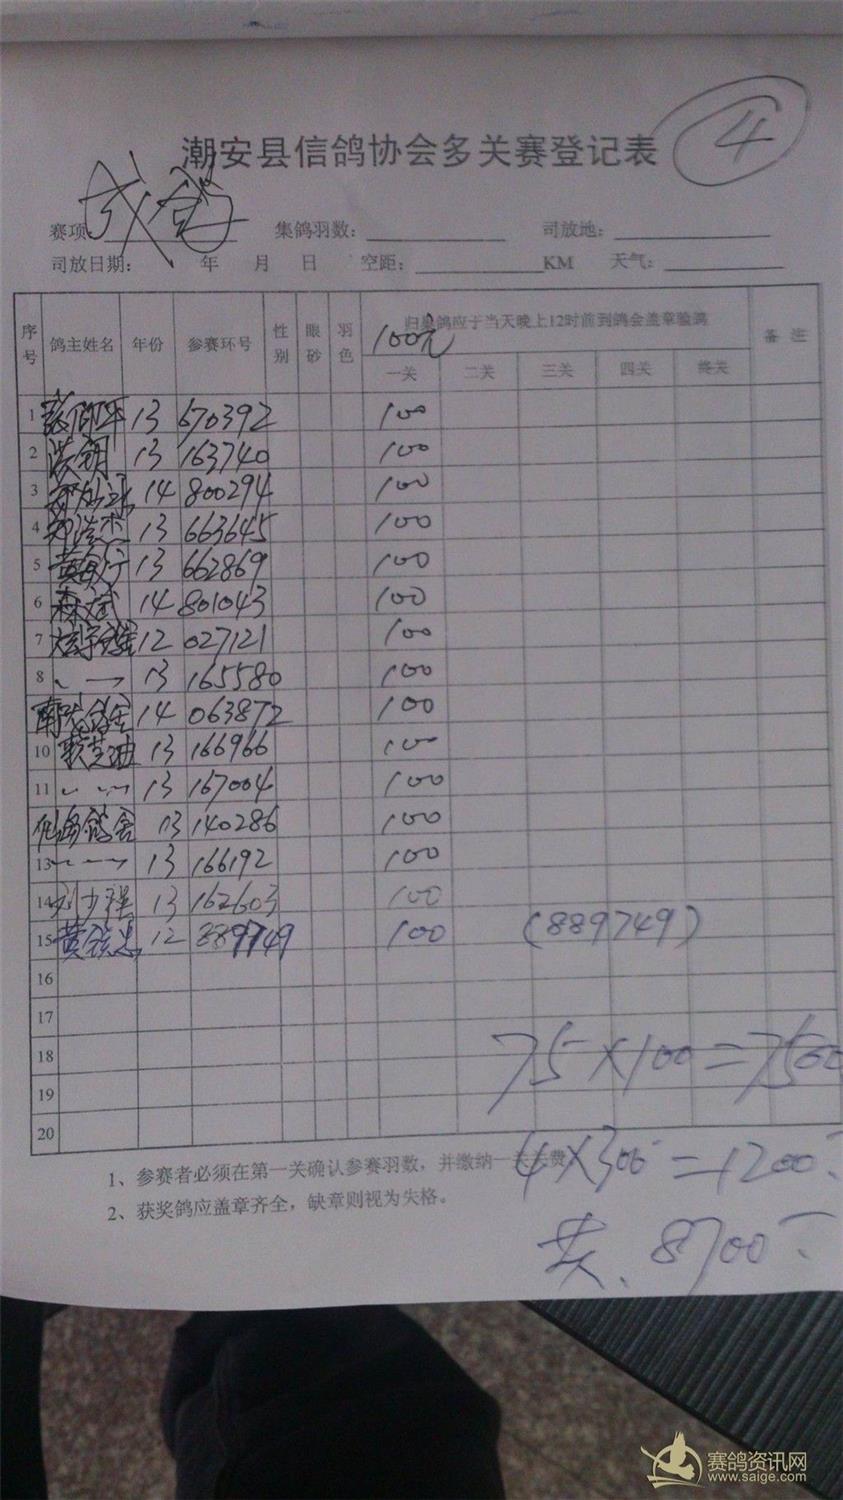 ④
潮安县信鸽协会多关赛登记表
赛项: 成鸽 集鸽羽数: 司放地:
司放日期: 年 月 日 空距: KM 天气:
序号 鸽主姓名 年份 参赛环号 性别 眼砂 羽色 归巢鸽应于当天晚上12时前到鸽会盖章验鸽 备注
100元
一关 二关 三关 四关 终关
1 13 670392 100
2 洪钢 13 163740 100
3 14 800294 100
4 13 663645 100
5 13 662869 100
6 森斌 14 801043 100
7 12 027121 100
8 13 165580 100
14 063872 100
10 13 166966 100
11 13 167004 100
鸽舍 13 140286 100
13 13 166192 100
14 刘少 13 162603 100
15 黄 12 889749 100 (889749)
16
17
18
19
20
75×100=7500
1、参赛者必须在第一关确认参赛羽数，并缴纳一关 费
4×300=1200
2、获奖鸽应盖章齐全，缺章则视为失格。
共、8700
赛鸽资讯网
www.saige.com